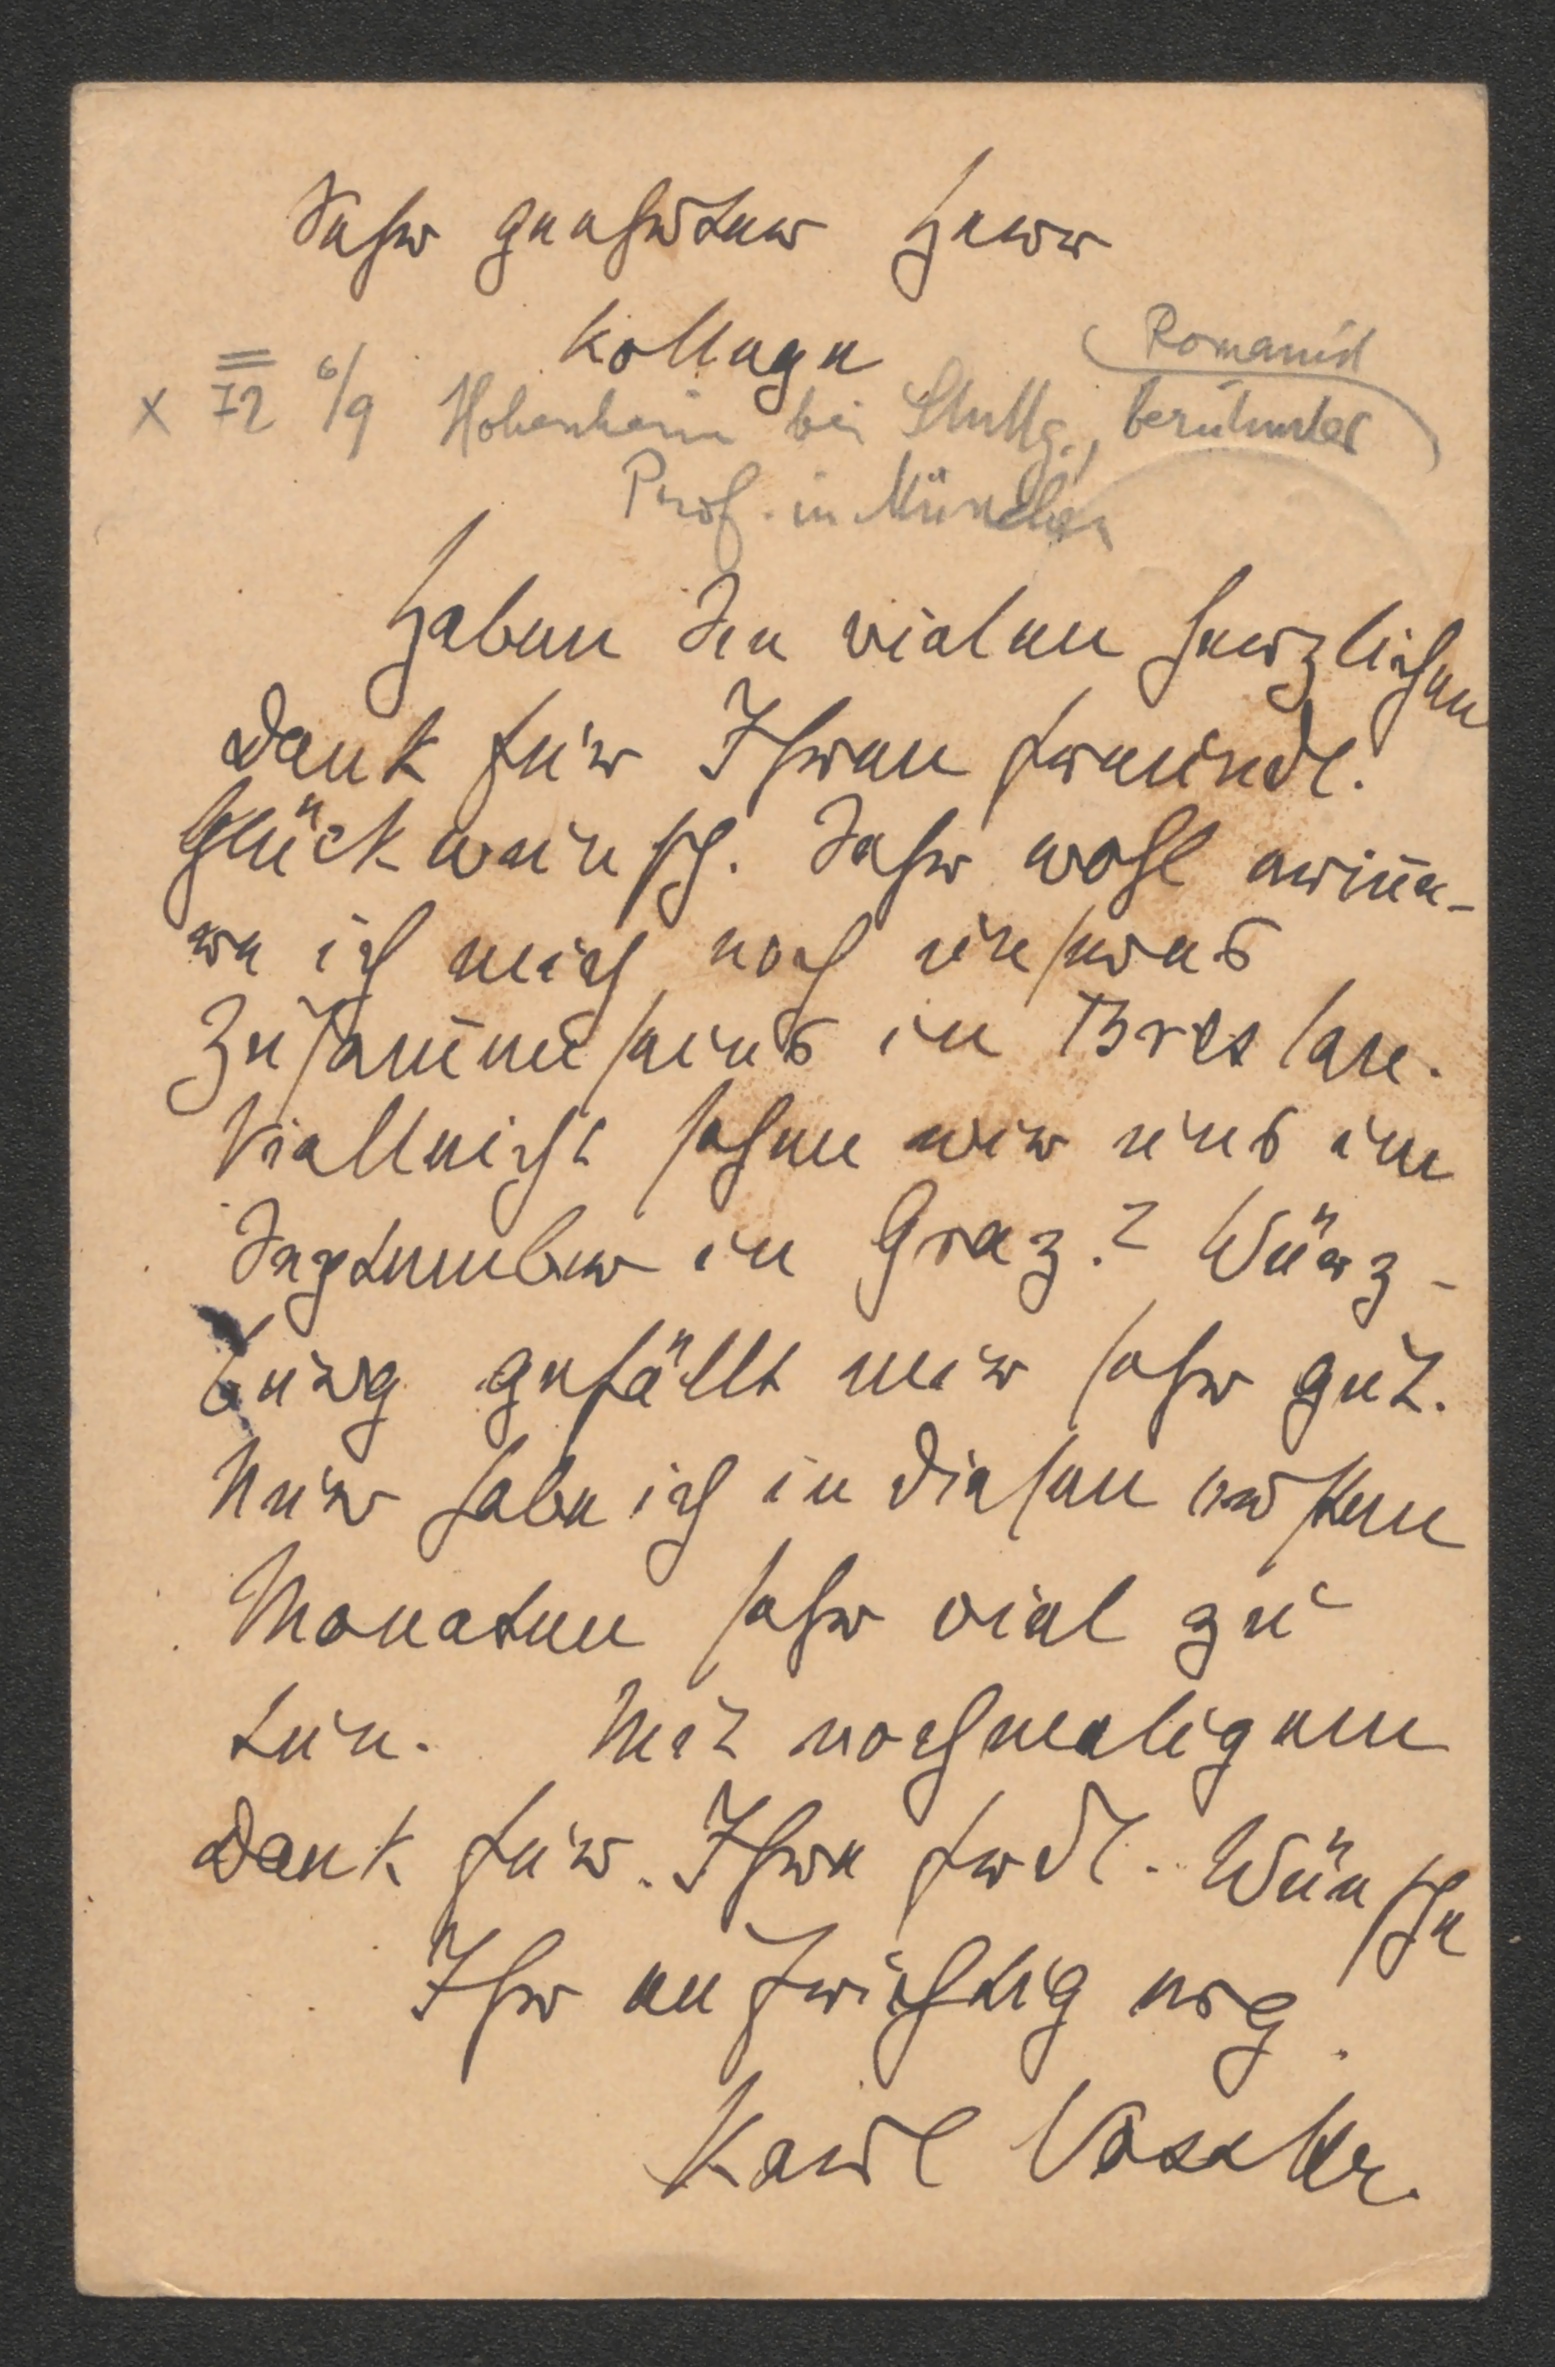 Sehr geehrter Herr
Kollege
Romanist
x 72 6/9 Hohenheim bei Stuttg., berühmter
Prof. in München
Haben Sie vielen herzlichen
Dank für Ihren freundl.
Glückwunsch. Sehr wohl erinne-
re ich mich noch unseres
Zusammenseins in Breslau.
Vielleicht sehen wir uns im
September in Graz? Würz-
burg gefällt mir sehr gut.
Nur habe ich in diesen ersten
Monaten sehr viel zu
tun. Mit nochmaligem
Dank für Ihre frdl. Wünsche
Ihr aufrichtig erg.
Karl Vossler.